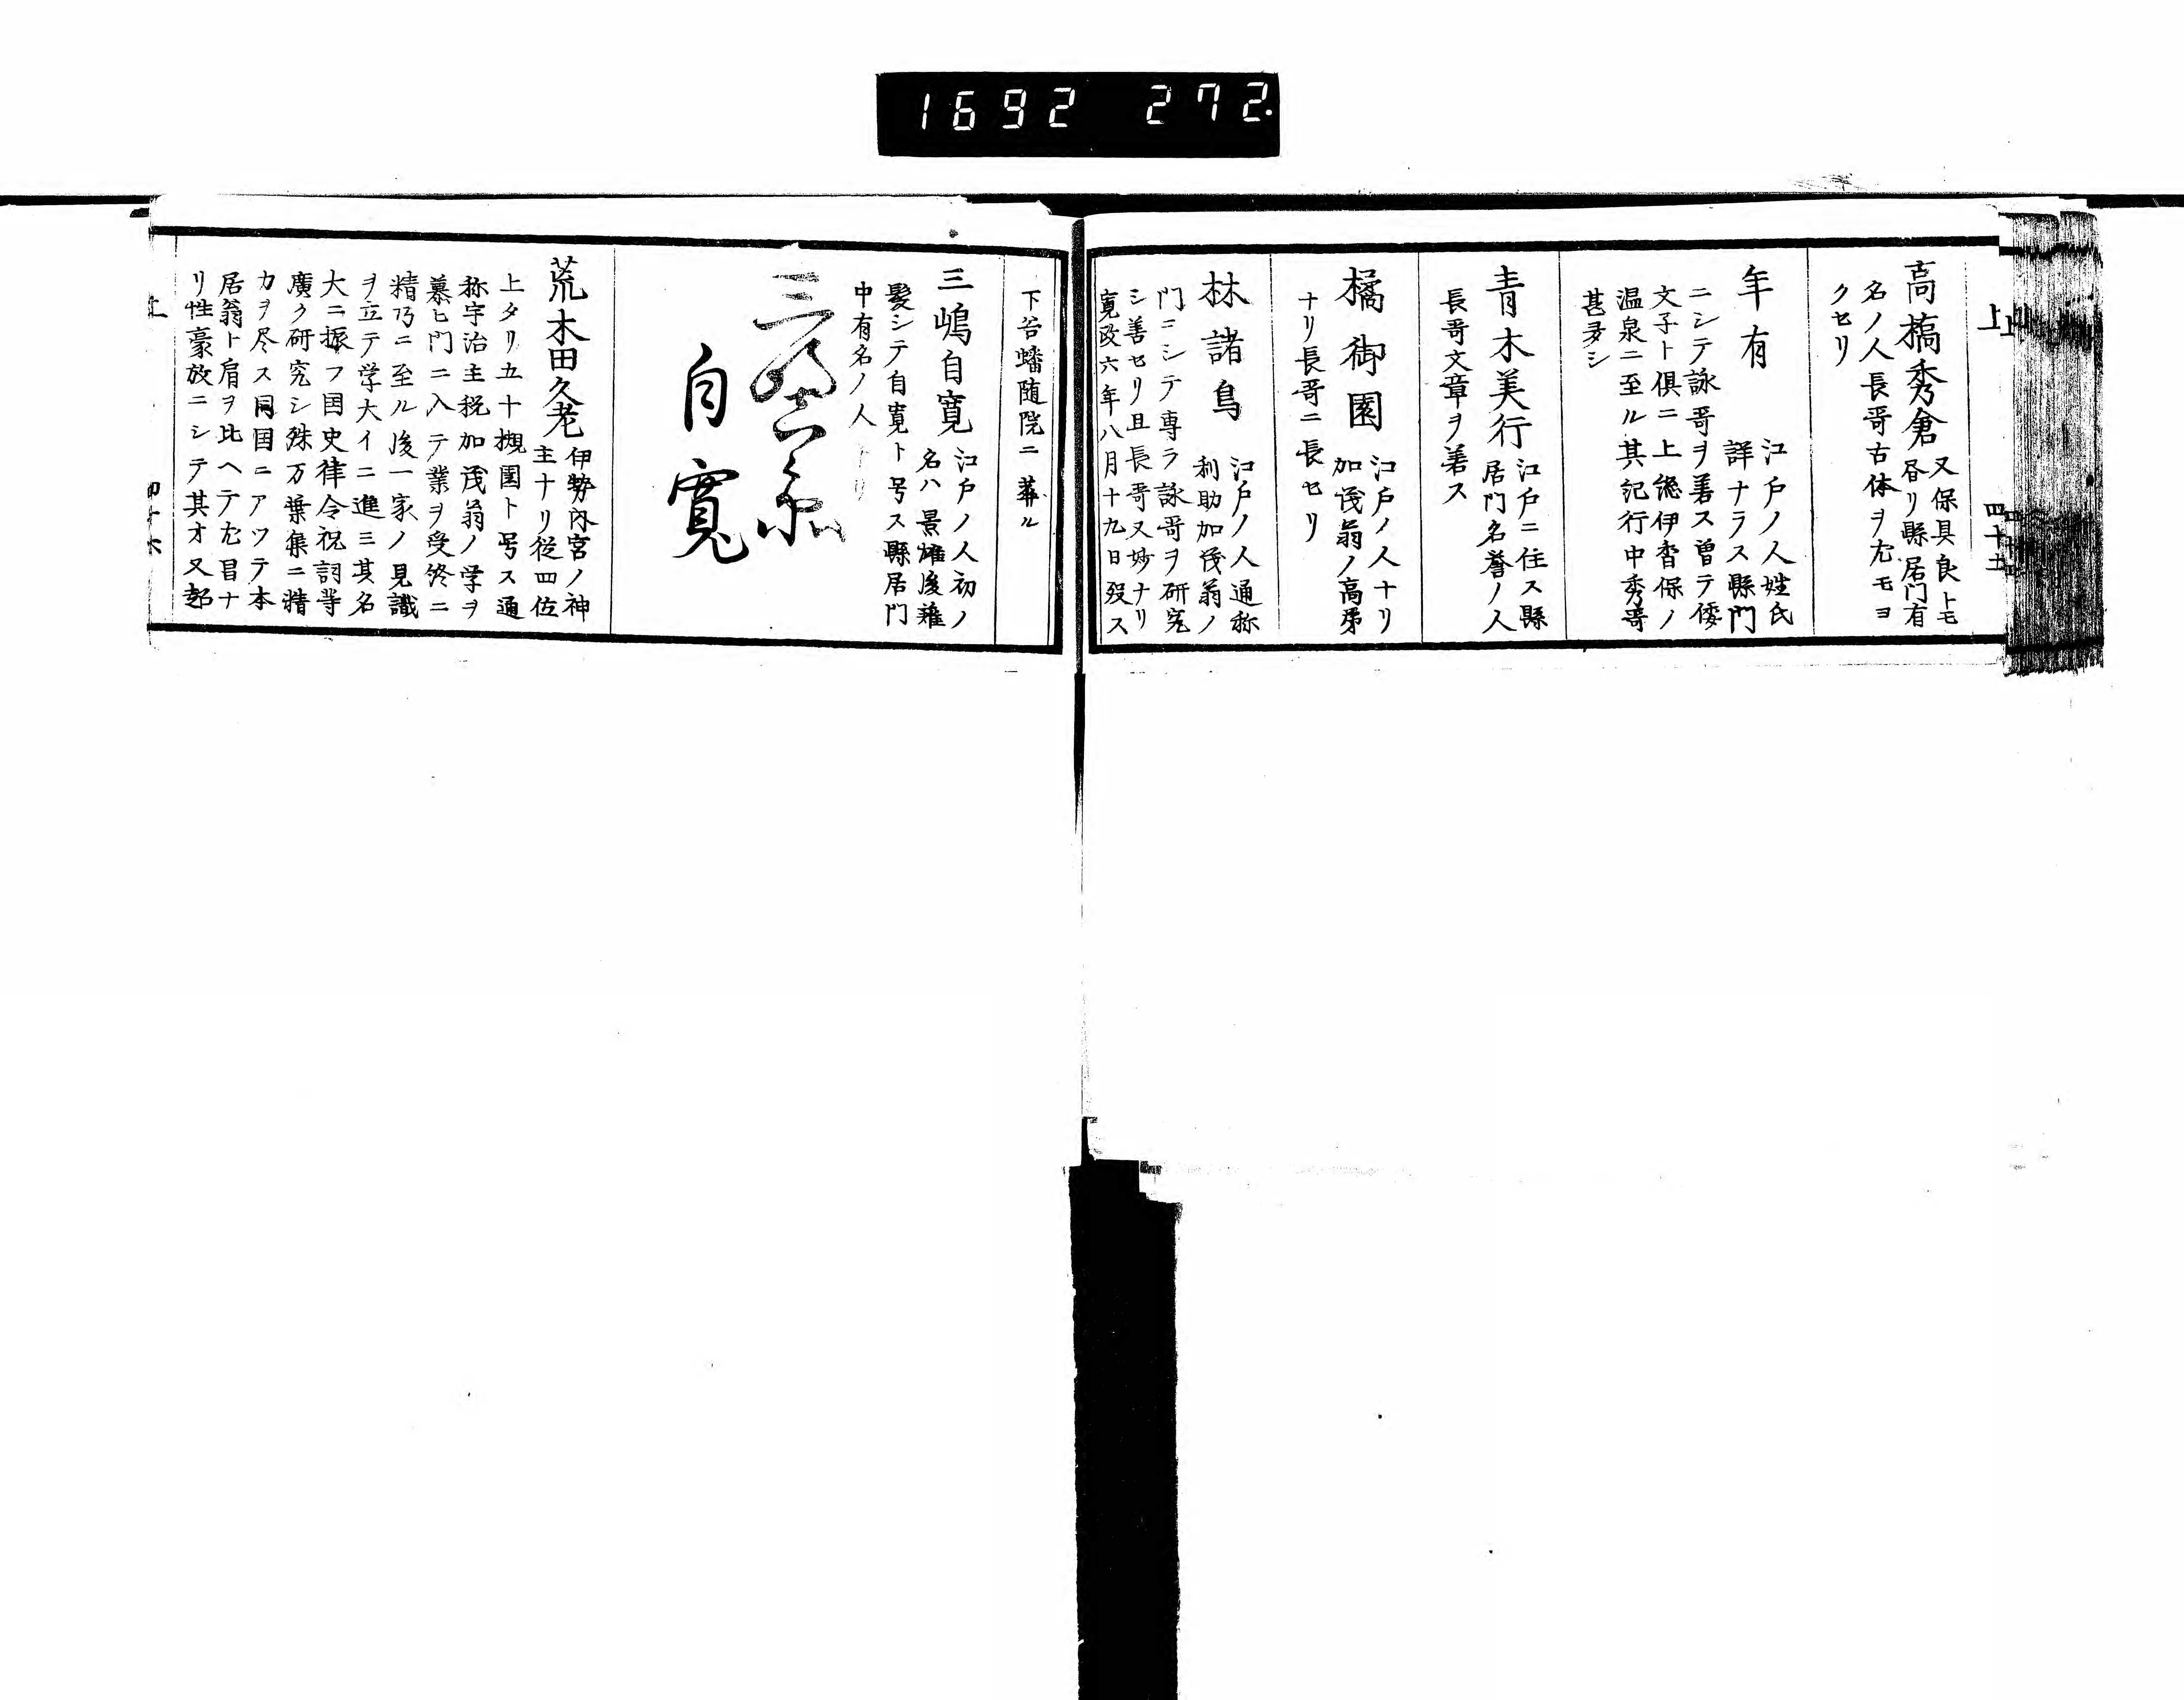 1692 272.
上
四十五
高橋秀倉
又保具良トモ
呑リ縣居門有
名ノ人長哥古体ヲ尤モヨ
クセリ
年有
江戸ノ人姓氏
詳ナラス縣門
ニシテ詠哥ヲ善ス曽テ倭
文子ト倶ニ上総伊香保ノ
温泉ニ至ル其記行中秀哥
甚多シ
青木美行
江戸ニ住ス縣
居門名誉ノ人
長哥文章ヲ善ス
橘御園
江戸ノ人ナリ
加茂翁ノ高弟
ナリ長哥ニ長セリ
林諸鳥
江戸ノ人通称
利助加茂翁ノ
門ニシテ専ラ詠哥ヲ研究
シ善セリ且長哥又妙ナリ
寛政六年八月十九日歿ス
下谷蟠随院ニ葬ル
三嶋自寛
江戸ノ人初ノ
名ハ景雄後薙
髪シテ自寛ト号ス縣居門
中有名ノ人
自寛
荒木田久老
伊勢内宮ノ神
主ナリ従四位
上タリ五十槻園ト号ス通
称宇治主税加茂翁ノ学ヲ
慕ヒ門ニ入テ業ヲ受終ニ
精乃ニ至ル後一家ノ見識
ヲ立テ学大イニ進ミ其名
大ニ振フ国史律令祝詞等
廣ク研究シ殊万葉集ニ精
力ヲ尽ス同国ニアツテ本
居翁ト肩ヲ比ヘテ尤昌ナ
リ性豪放ニシテ其才又超
上
四十六